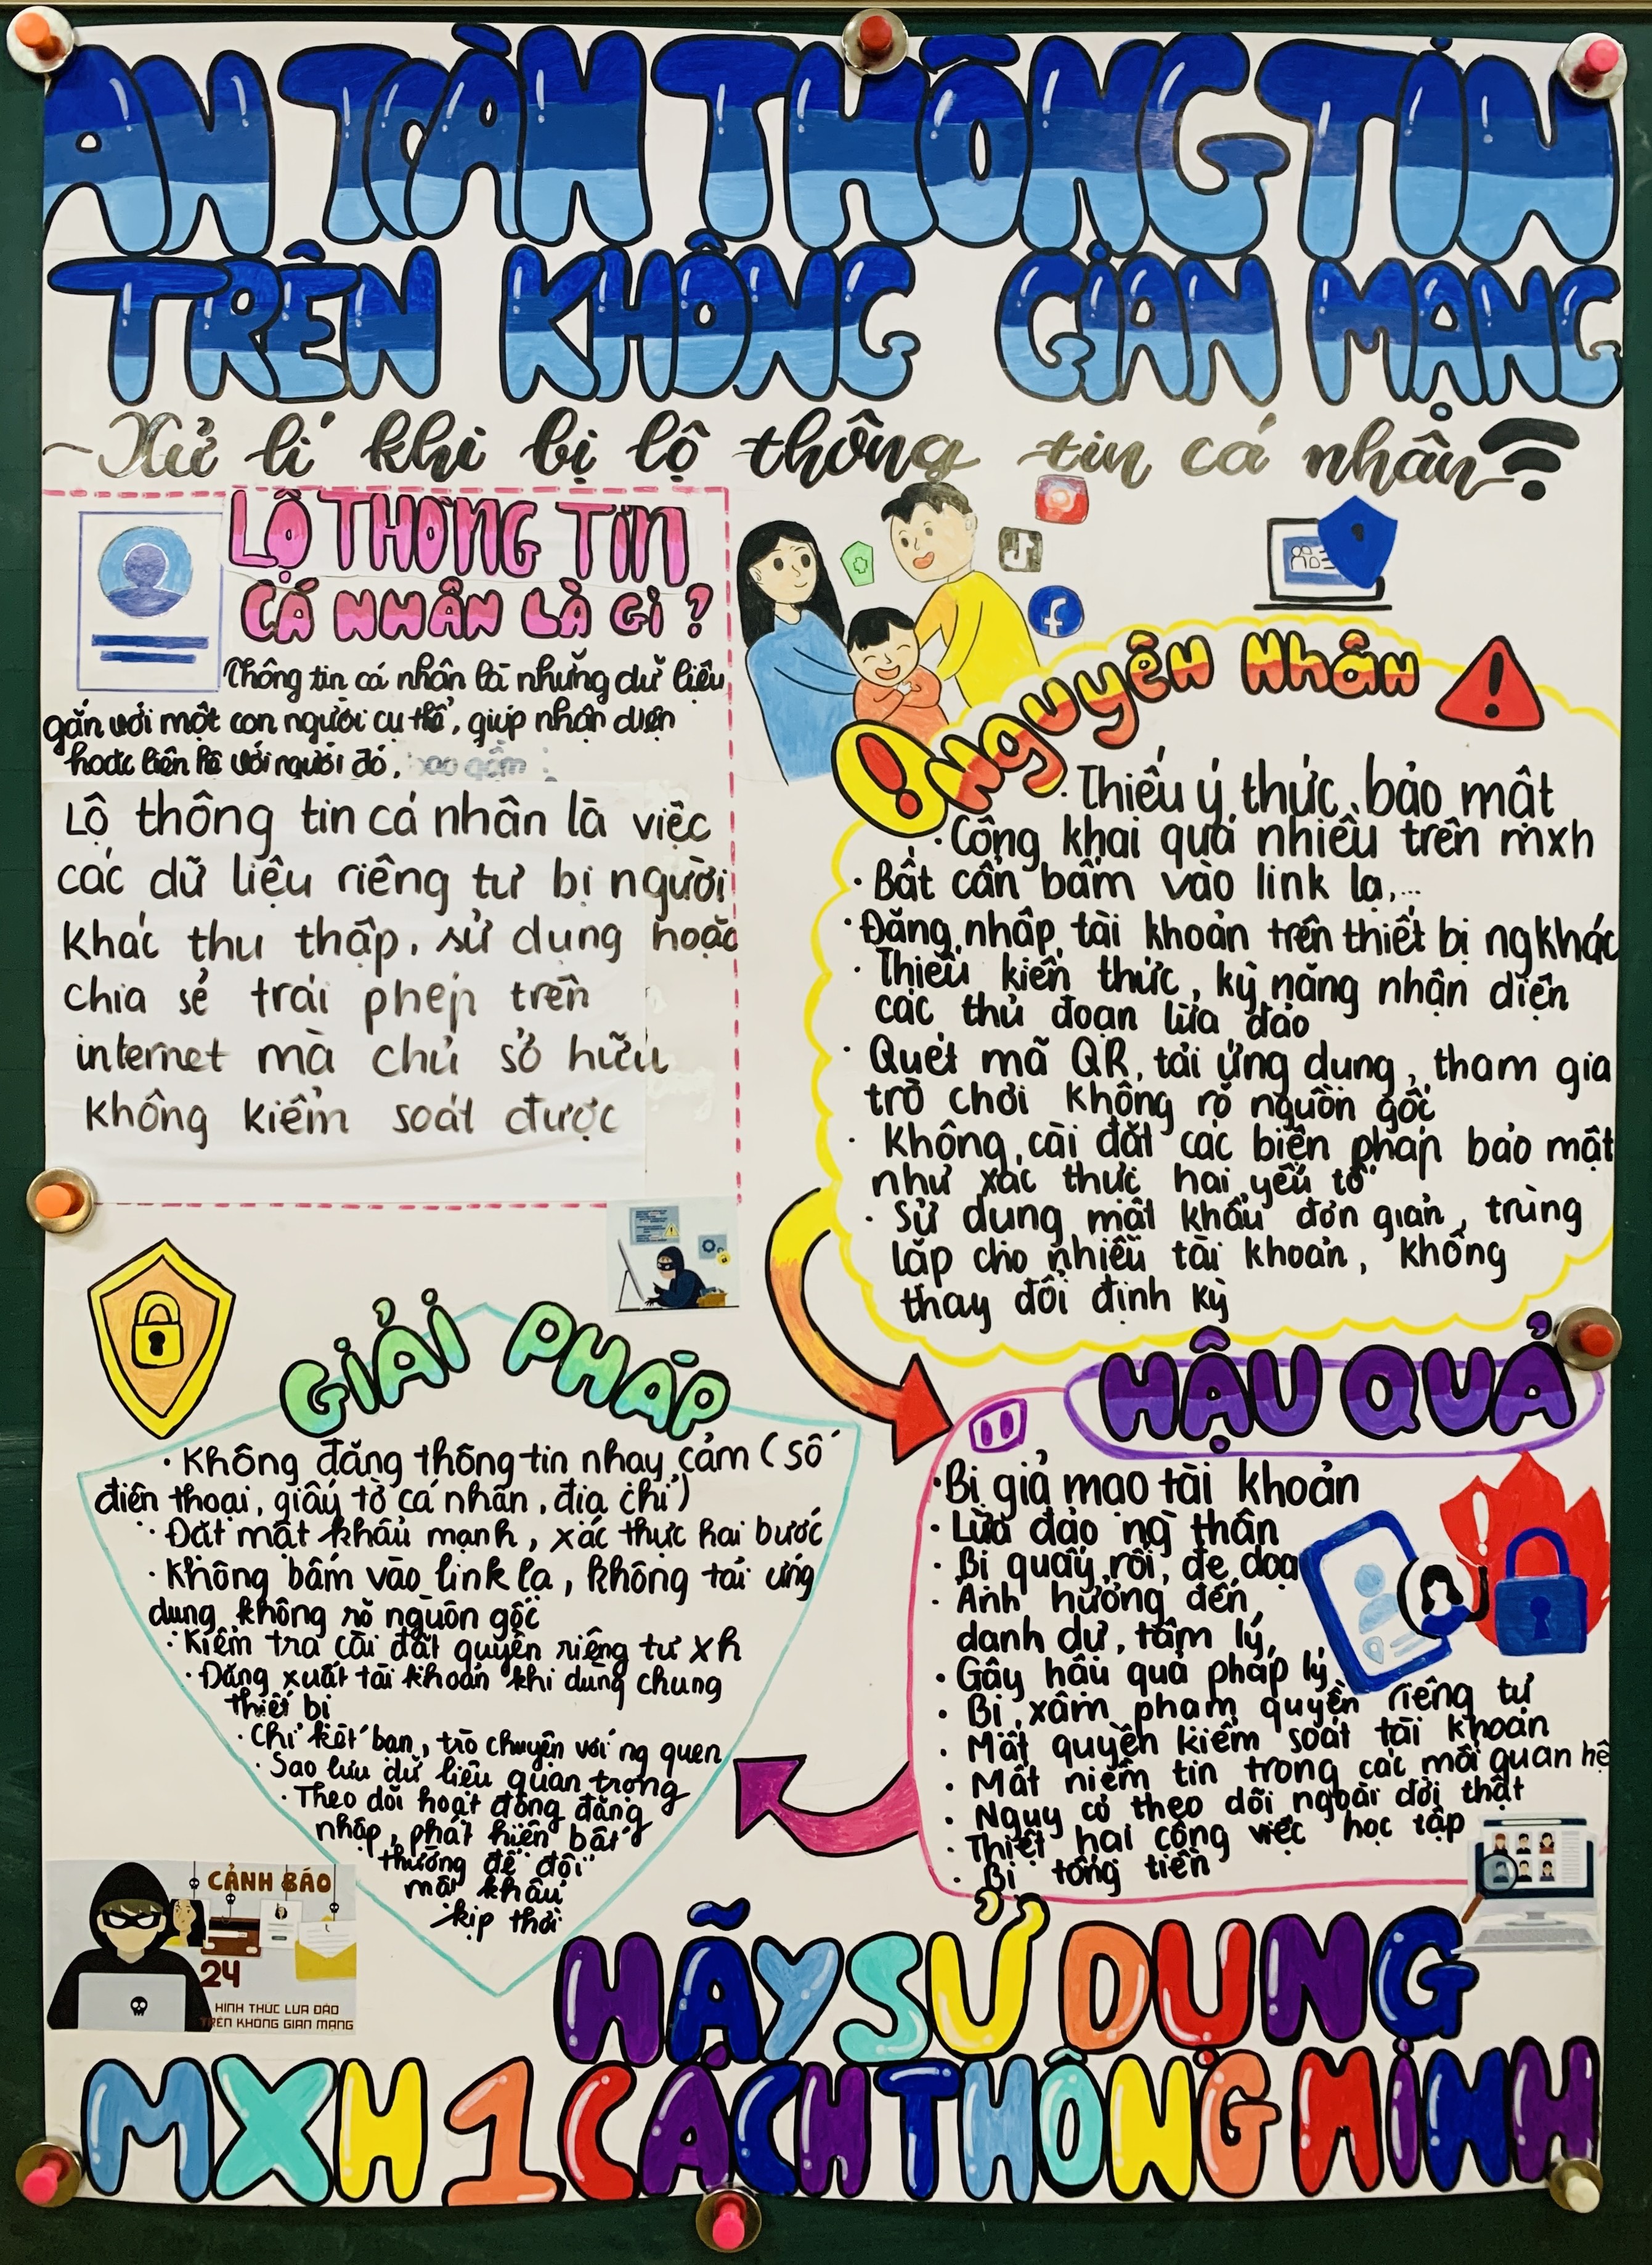 AN TOÀN THÔNG TIN
TRÊN KHÔNG GIAN MẠNG
Xử lí khi bị lộ thông tin cá nhân
LỘ THÔNG TIN
CÁ NHÂN LÀ GÌ ?
Thông tin cá nhân là những dữ liệu
gắn với một con người cụ thể, giúp nhận diện
hoặc liên hệ với người đó, bao gồm :
Lộ thông tin cá nhân là việc
các dữ liệu riêng tư bị người
khác thu thập, sử dụng hoặc
chia sẻ trái phép trên
internet mà chủ sở hữu
không kiểm soát được
Nguyên Nhân
· Thiếu ý thức bảo mật
· Công khai quá nhiều trên mxh
· Bất cẩn bấm vào link lạ,...
· Đăng nhập tài khoản trên thiết bị ng khác
· Thiếu kiến thức, kỹ năng nhận diện
các thủ đoạn lừa đảo
· Quét mã QR, tải ứng dụng, tham gia
trò chơi không rõ nguồn gốc
· Không cài đặt các biện pháp bảo mật
như xác thực hai yếu tố
· Sử dụng mật khẩu đơn giản, trùng
lặp cho nhiều tài khoản, không
thay đổi định kỳ
HẬU QUẢ
· Bị giả mạo tài khoản
· Lừa đảo ng thân
· Bị quấy rối, đe doạ
· Ảnh hưởng đến
danh dự, tâm lý,
· Gây hậu quả pháp lý
· Bị xâm phạm quyền riêng tư
· Mất quyền kiểm soát tài khoản
· Mất niềm tin trong các mối quan hệ
· Nguy cơ theo dõi ngoài đời thật
· Thiệt hại công việc học tập
· Bị tống tiền
GIẢI PHÁP
· Không đăng thông tin nhạy cảm ( số
điện thoại, giấy tờ cá nhân, địa chỉ )
· Đặt mật khẩu mạnh, xác thực hai bước
· Không bấm vào link lạ, không tải ứng
dụng không rõ nguồn gốc
· Kiểm tra cài đặt quyền riêng tư xh
· Đăng xuất tài khoản khi dùng chung
thiết bị
· Chỉ kết bạn, trò chuyện với ng quen
· Sao lưu dữ liệu quan trọng
· Theo dõi hoạt động đăng
nhập, phát hiện bất
thường để đổi
mật khẩu
kịp thời
CẢNH BÁO
24
HÌNH THỨC LỪA ĐẢO
TRÊN KHÔNG GIAN MẠNG
HÃY SỬ DỤNG
MXH 1 CÁCH THÔNG MINH